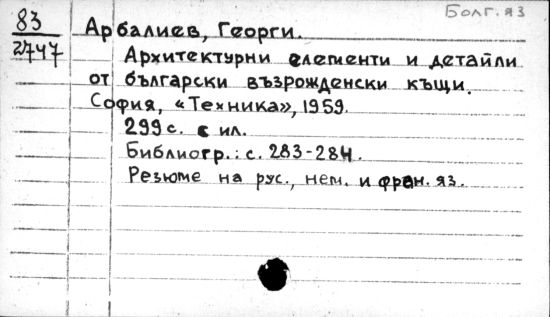 Болг. яз
83
2747
Арбалиев, Георги.
Архитектурни елементи и детайли
от български възрожденски къщи.
София, «Техника», 1959.
299 с. с ил.
Библиогр.: с. 283-284.
Резюме на рус., нем. и фран. яз.